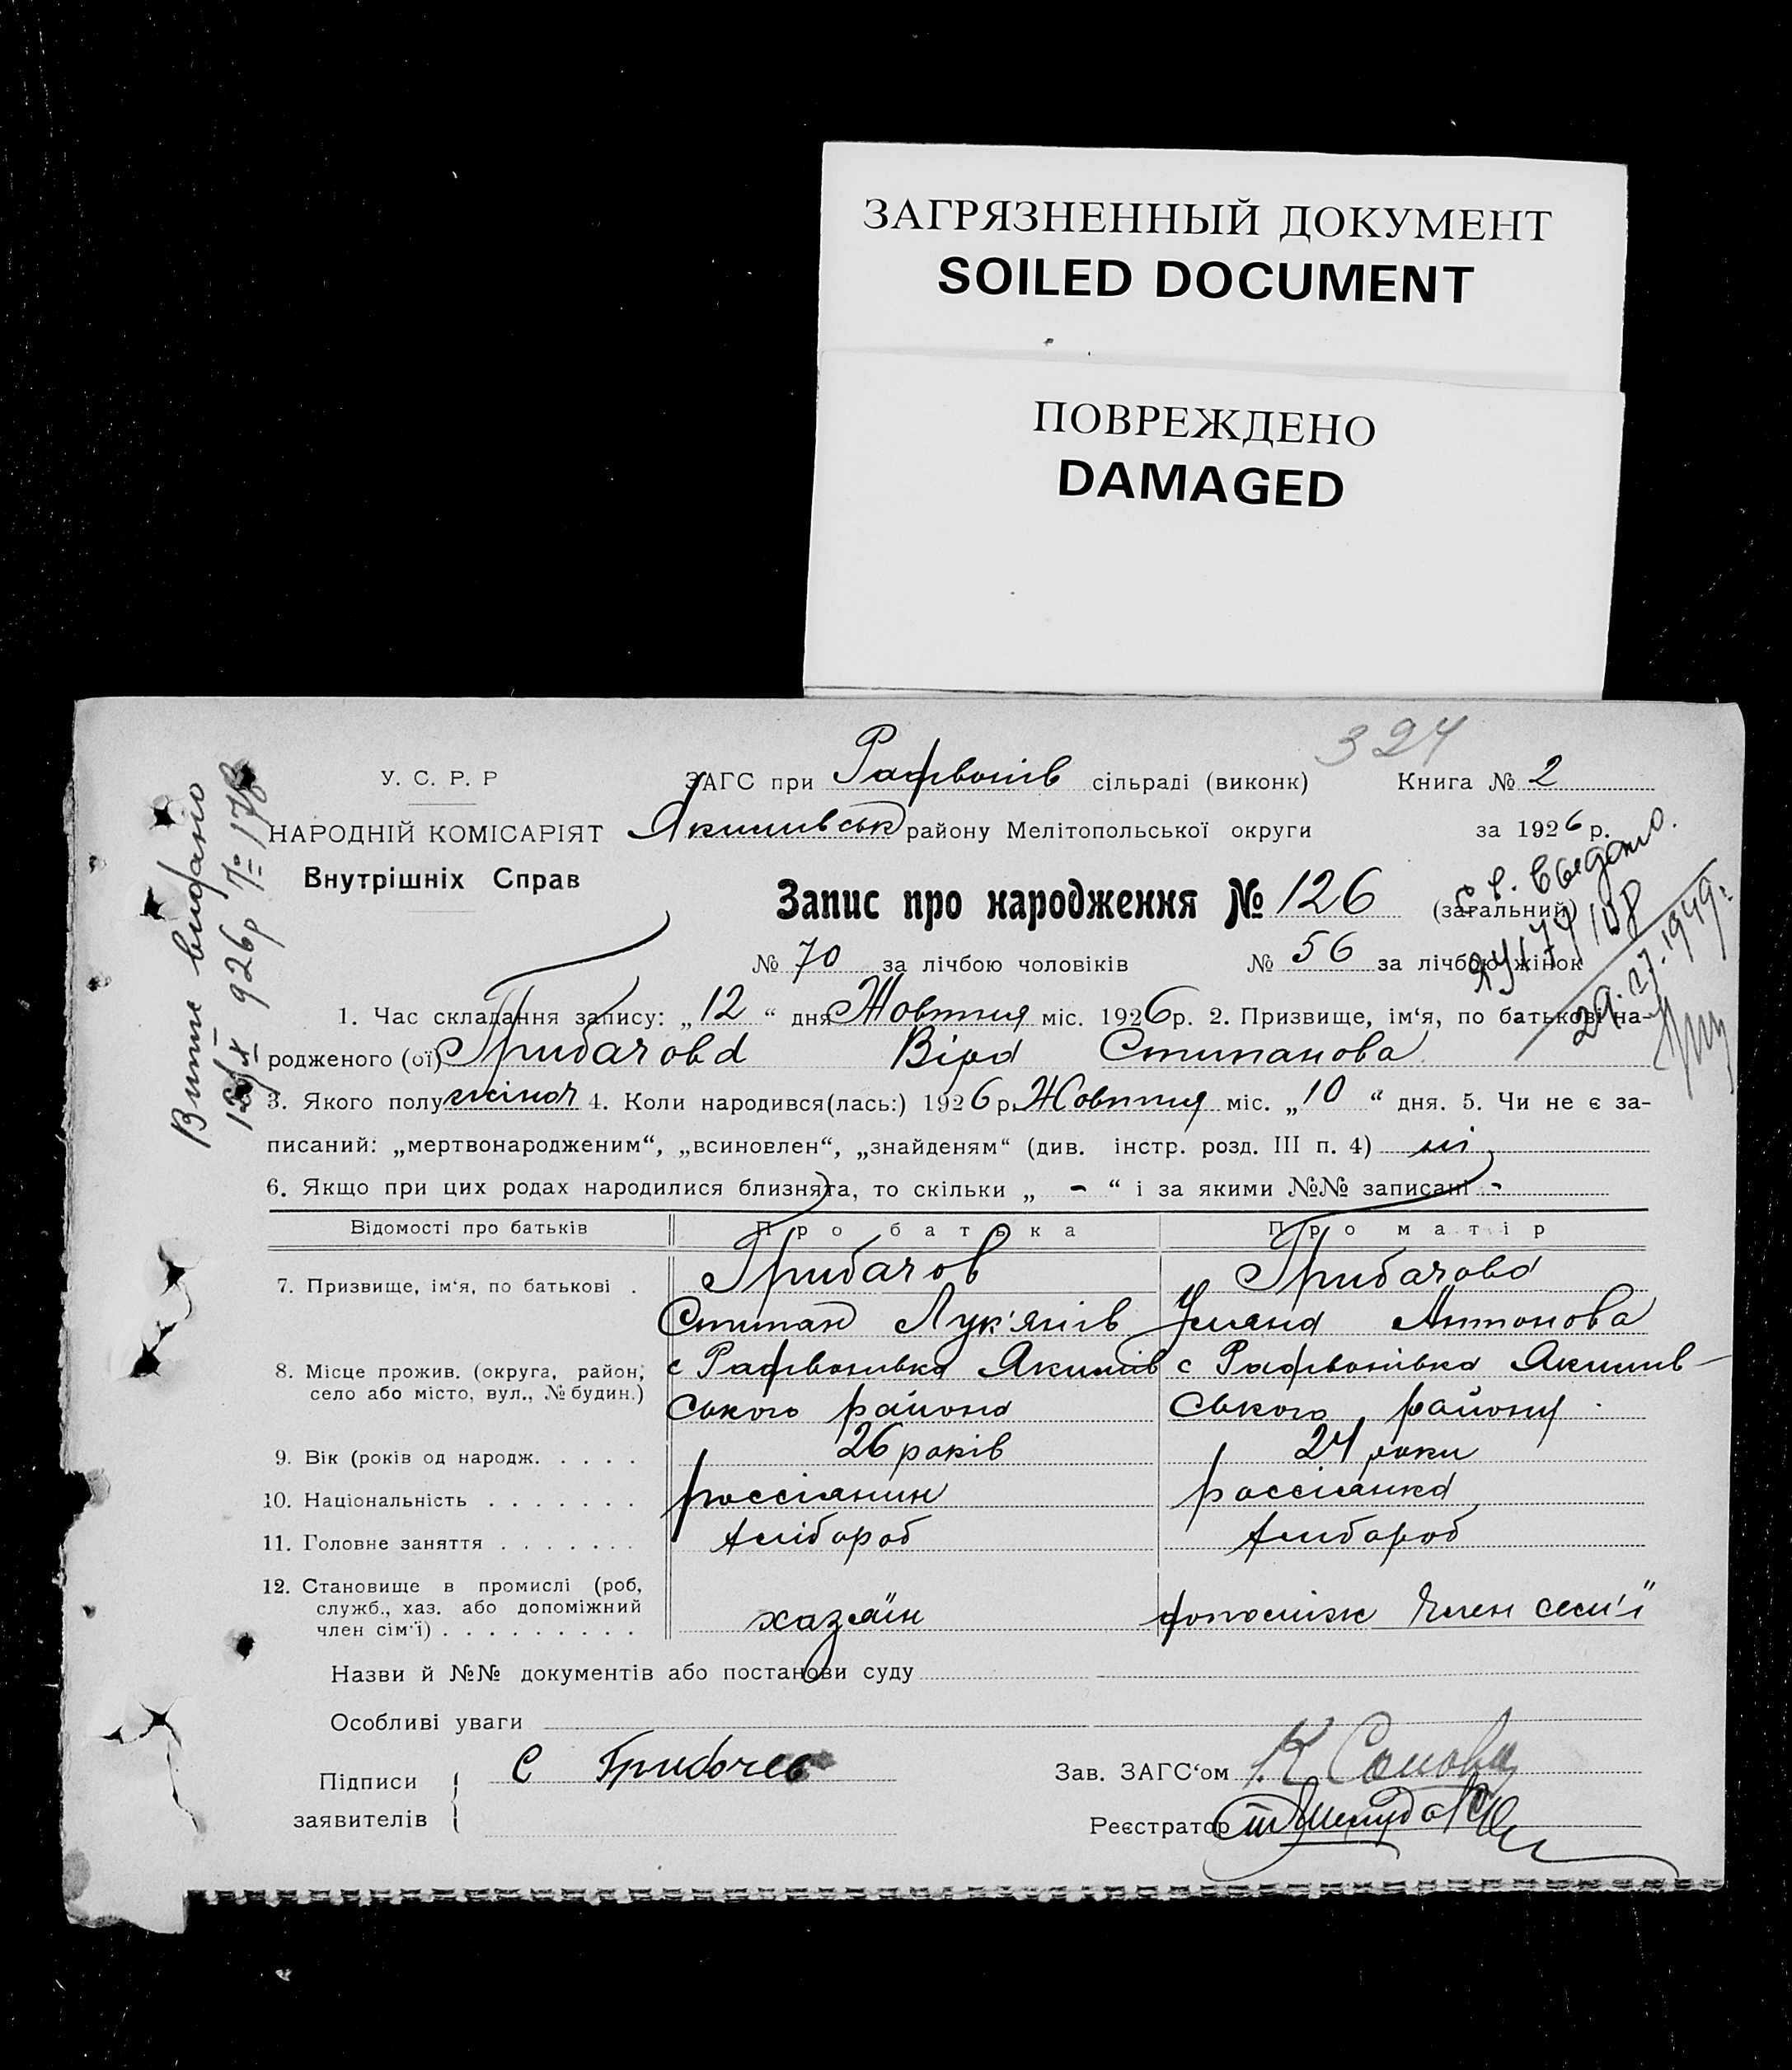 ЗАГРЯЗНЕННЫЙ ДОКУМЕНТ
SOILED DOCUMENT
ПОВРЕЖДЕНО
DAMAGED
324
У. С. Р. Р
НАРОДНІЙ КОМІСАРІЯТ
Внутрішніх Справ
ЗАГС при Радивонів сільраді (виконк) Книга № 2
Якимівськ району Мелітопольської округи за 1926 р.
Запис про народження № 126 (загальний)
№ 70 за лічбою чоловіків № 56 за лічбою жінок
Витяг видано
926р № 178
выдано
1949г
1. Час складання запису: „12“ дня Жовтня міс. 1926р. 2. Призвище, ім‘я, по батькові на-
родженого (ої) Грибачова Віра Степанова
3. Якого полу жіноч 4. Коли народився(лась:) 1926р. Жовтня міс. „10“ дня. 5. Чи не є за-
писаний: „мертвонародженим“, „всиновлен“, „знайденям“ (див. інстр. розд. III п. 4) ні
6. Якщо при цих родах народилися близнята, то скільки „ - “ і за якими №№ записані -
Відомості про батьків Про батька Про матір
7. Призвище, ім‘я, по батькові . Грибачов Грибачова
Степан Лук'янів Уляна Антонова
8. Місце прожив. (округа, район, село або місто, вул., № будин.) с Радивонівка Якимів с Радивонівка Якимів-
ського района ського району
9. Вік (років од народж. . . . . 26 років 24 роки
10. Національність . . . . . . . россіянин россіянка
11. Головне заняття . . . . . . . хлібороб хлибороб
12. Становище в промислі (роб,
служб., хаз. або допоміжний
член сім‘ї) . . . . . . . . . хазяїн допоміж член сем'ї
Назви й №№ документів або постанови суду
Особливі уваги
Підписи
заявителів
С Грибочев
Зав. ЗАГС‘ом
Реєстратор